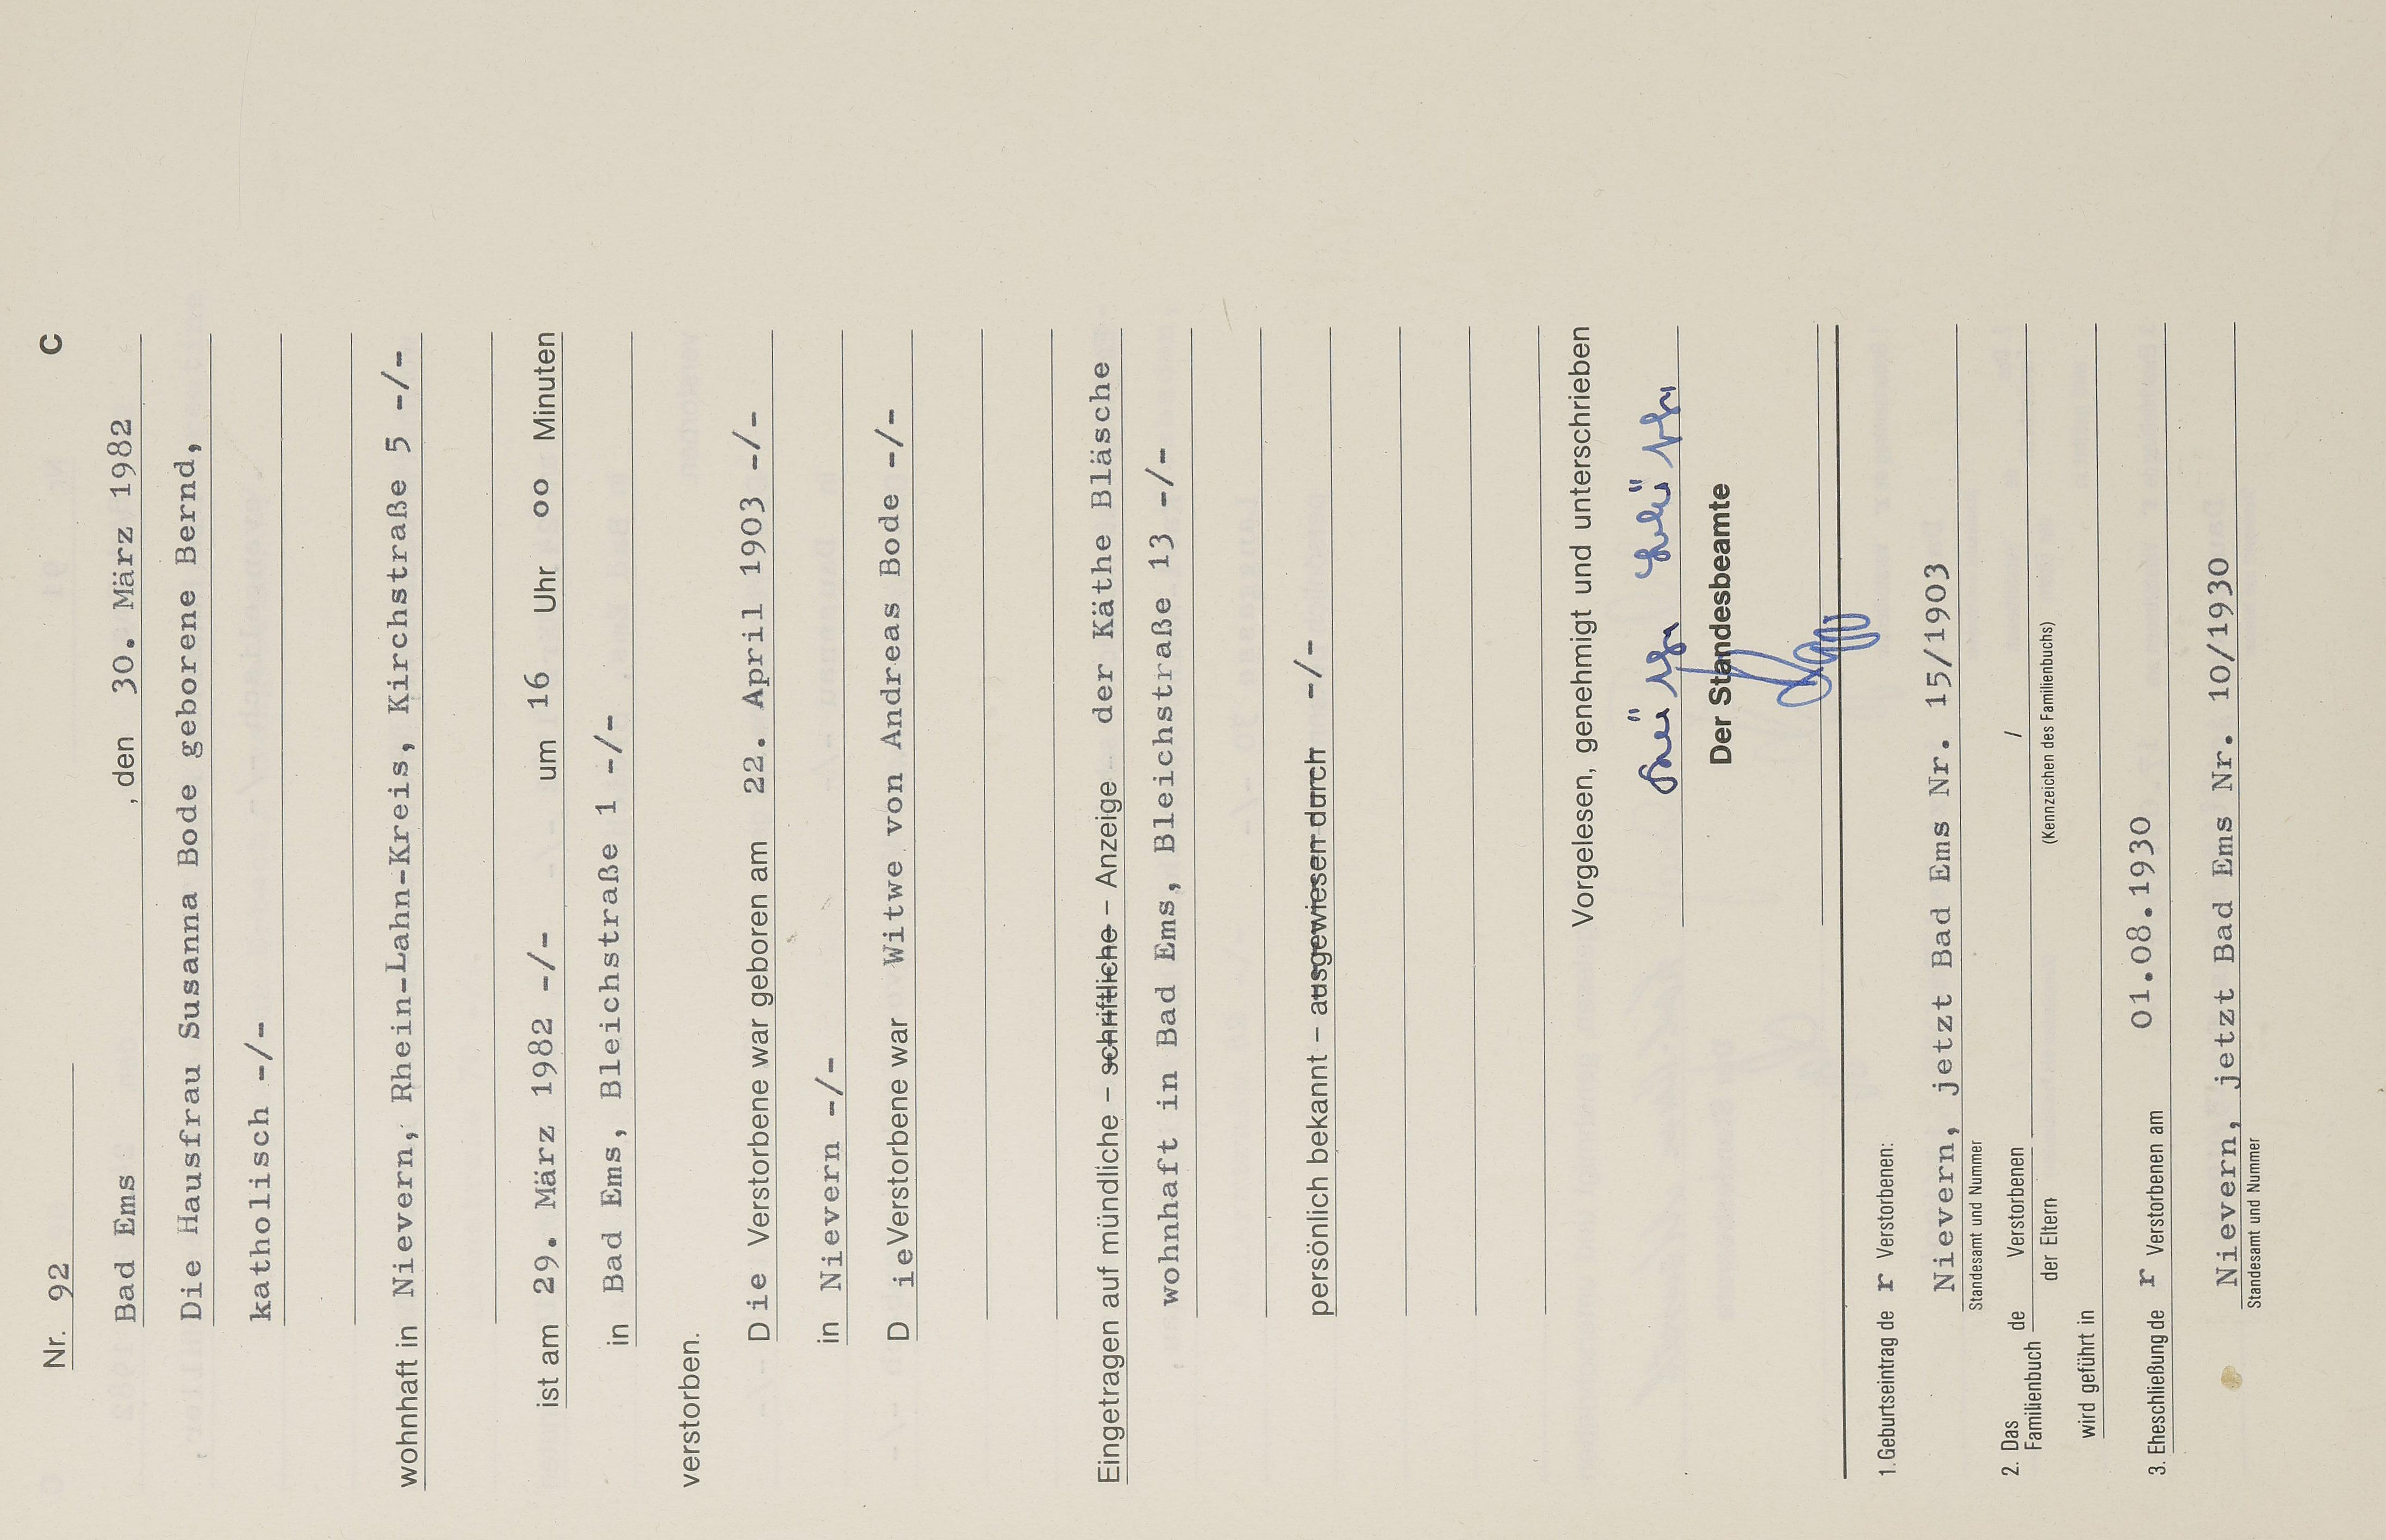 Nr. 92 C
Bad Ems , den 30. März 1982
Die Hausfrau Susanna Bode geborene Bernd,
katholisch -/-
wohnhaft in Nievern, Rhein-Lahn-Kreis, Kirchstraße 5 -/-
ist am 29. März 1982 -/- um 16 Uhr oo Minuten
in Bad Ems, Bleichstraße 1 -/-
verstorben.
Die Verstorbene war geboren am 22. April 1903 -/-
in Nievern -/-
Die Verstorbene war Witwe von Andreas Bode -/-
Eingetragen auf mündliche – schriftliche – Anzeige der Käthe Bläsche
wohnhaft in Bad Ems, Bleichstraße 13 -/-
persönlich bekannt – ausgewiesen durch -/-
Vorgelesen, genehmigt und unterschrieben
Der Standesbeamte
1. Geburtseintrag de r Verstorbenen:
Nievern, jetzt Bad Ems Nr. 15/1903
Standesamt und Nummer
2. Das Familienbuch de Verstorbenen /
der Eltern (Kennzeichen des Familienbuchs)
wird geführt in
3. Eheschließung de r Verstorbenen am 01.08.1930
Nievern, jetzt Bad Ems Nr. 10/1930
Standesamt und Nummer